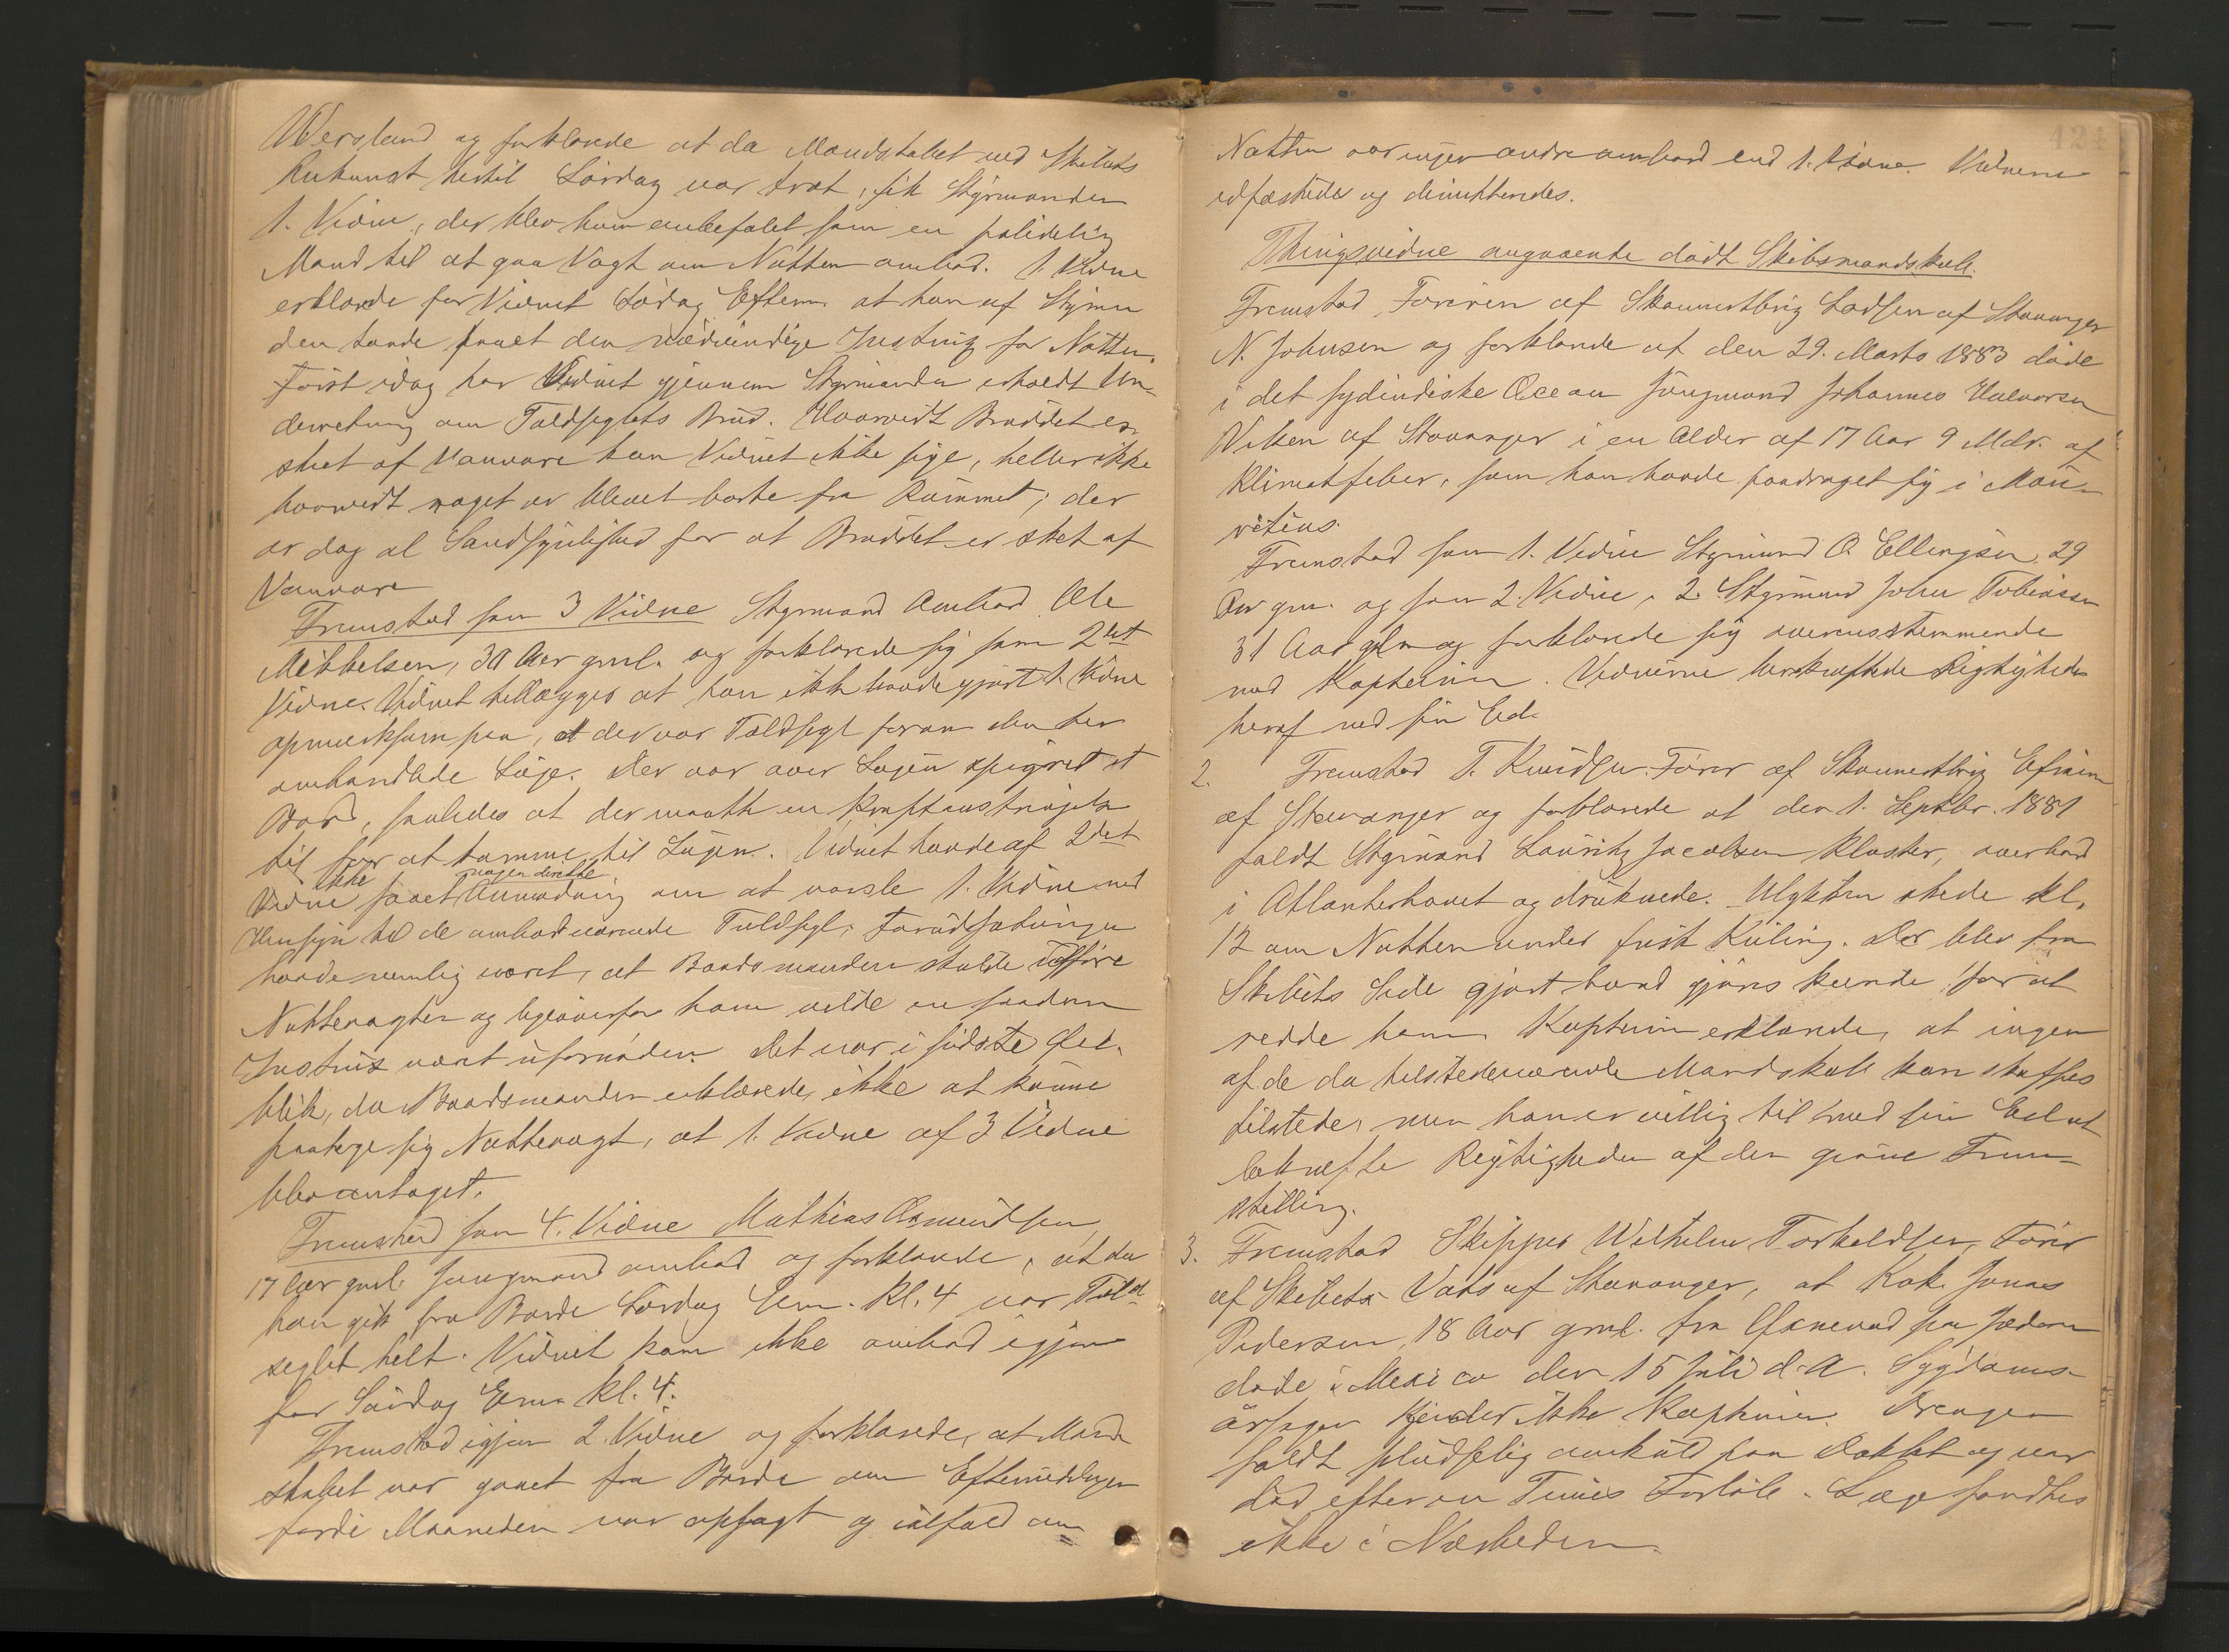 Wersland og forklarede at da Mandskabet ved Skibets
Ankomst hertil Lørdag var træt, fik Styrmanden
1. Vidne, der blev ham anbefalet som en palidelig
Mand til at gaa Vagt om Natten ombord. 1. Vidne
erklærede for Vidnet Lørdag Efterm. at han af Styrman
den havde faaet den nødvendige Instrux for Natten.
Først idag har Vidnet gjennem Styrmanden erholdt Un-
derretning om Toldseglets Brud. Hvorvidt Bruddet er
skeet af Vanvare kan Vidnet ikke sige, heller ikke
hvorvidt noget er blevet borte fra Rummet; der
er dog al Sandsynlighed for at Bruddet er skeet af
Vanvare
Fremstod som 3 Vidne Styrmand ombord Ole
Mikkelsen, 30 Aar gml. og forklarede sig som 2det
Vidne. Vidnet tillægger at han ikke havde gjort 1. Vidne
opmerksom paa, at der var Toldsegl foran den her
omhandlede Luge. Der var over Lugen spigret et
Bord, saaledes at der maatte en Kraftanstrængelse
til for at komme til Lugen. Vidnet havde af 2det
Vidne ikke faaet nogen direkte Anmodning om at varsle 1. Vidne med
Hensyn til de ombordværende Toldsegl, Forudsætningen
havde nemlig været, at Baadsmanden skulde udføre
Nattevagten og ligeoverfor ham vilde en saadan
Instrux været ufornøden. Det var i sidste Øie-
blik, da Baadsmanden erklærede, ikke at kunne
paatage sig Nattevagt, at 1. Vidne af 3 Vidne
blev antaget.
Fremstod som 4. Vidne Mathias Asmundsen,
17 Aar gml. Jungmand ombord og forklarede, at da
han gik fra Borde Lørdag Em. Kl. 4 var Told-
seglet helt. Vidnet kom ikke ombord igjen
før Søndag Em. Kl. 4.
Fremstod igjen 2. Vidne og forklarede, at Mand
skabet var gaaet fra Borde om Eftermiddagen
fordi Maaneden var opsagt og ialfald om
Natten var ingen andre ombord end 1. Vidne. Vidnerne
edfæstedes og dimitteredes.
Thingsvidne angaaende dødt Skibsmandskab.
Fremstod Føreren af Skonnertbrig Lodsen af Stavanger
N. Johnsen og forklarede at den 29. Marts 1883 døde
i det sydindiske Ocean Jungmand Johannes Halvorsen
Viksen af Stavanger i en Alder af 17 Aar 9 Mdr. af
Klimatfeber, som han havde paadraget sig i Mau-
ritius.
Fremstod som 1. Vidne Styrmand O. Ellingsen, 29
Aar gm. og som 2. Vidne, 2. Styrmand John Tobiassen
31 Aar glm og forklarede sig overensstemmende
med Kapteinen. Vidnerne bekræftede Rigtigheden
heraf med sin Ed.
2. Fremstod T. Knudsen. Fører af Skonnertbrig Efraim
af Stavanger og forklarede at den 1. Septbr. 1881
faldt Styrmand Lauritz Jacobsen Kloster, overbord
i Atlanterhavet og druknede. Ulykken skede Kl.
12 om Natten under frisk Kuling. Der blev fra
Skibets Side gjort hvad gjøres kunde for at
redde ham. Kapteinen erklærede, at ingen
af de da tilstedeværende Mandskab kan skaffes
tilstede, men han er villig til med sin Eed at
bekræfte Rigtigheden af den givne Frem-
stilling.
3. Fremstod Skipper Wilhelm Torkeldsen, Fører
af Skibet Vats af Stavanger, at Kok Jonas
Pedersen, 18 Aar gml. fra paa Jæderen
døde i Mexico den 15 Juli d. A. Sygdoms-
årsagen kjender ikke Kapteinen. Drengen
faldt pludselig omkuld paa Dækket og var
død efter en Times Forløb. Læge fandtes
ikke i Nærheden.